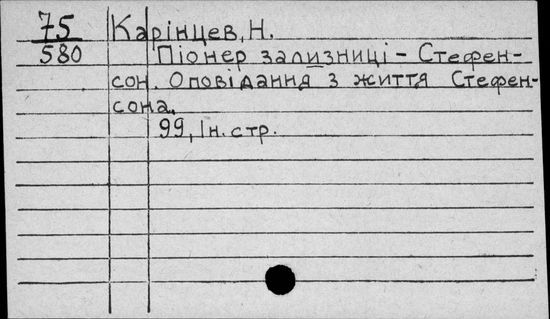 75
580
Карінцев, Н.
Піонер зализниці - Стефен-
сон. Оповідання з життя Стефен-
сона.
99, Ін. стр.